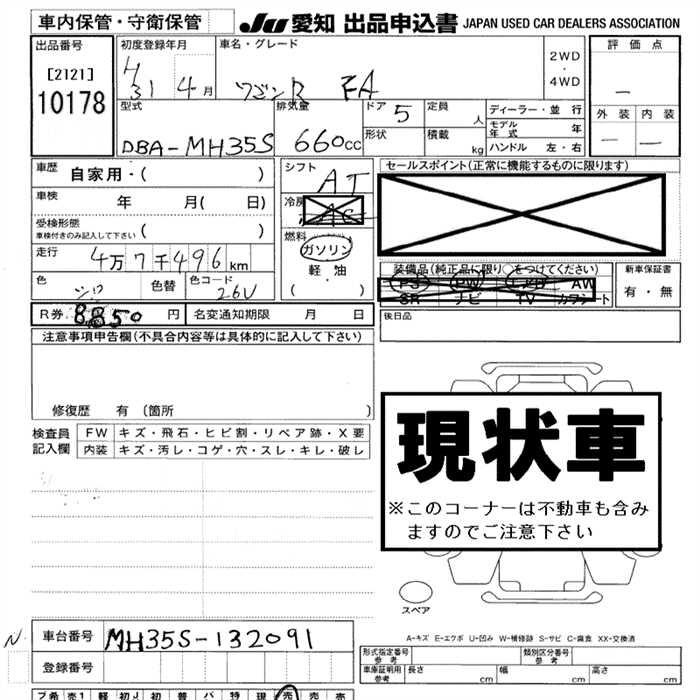 車内保管・守衛保管 JU 愛知 出品申込書 JAPAN USED CAR DEALERS ASSOCIATION
出品番号 [2121] 10178
初度登録年月 H 31 4月
車名・グレード ワゴンR FA
2WD・4WD
評価点 —
外装 — 内装 —
型式 DBA-MH35S
排気量 660cc
ドア 5 形状
定員 人 積載 kg
ディーラー・並行
モデル年式 年
ハンドル 左・右
車歴 自家用・( )
車検 年 月( 日)
受検形態 車検付きのみ記入して下さい ( )
走行 4万7千496km
色 シロ 色替 色コード 26U
R券 8850円 名変通知期限 月 日
シフト AT
冷房
燃料 ガソリン・軽油・( )
セールスポイント(正常に機能するものに限ります)
装備品(純正品に限り○をつけてください)
PS PW AW
SR ナビ TV カワシート
新車保証書 有・無
後日品
注意事項申告欄(不具合内容等は具体的に記入して下さい)
修復歴 有(箇所 )
検査員記入欄
FW キズ・飛石・ヒビ割・リペア跡・X要
内装 キズ・汚レ・コゲ・穴・スレ・キレ・破レ
現状車
※このコーナーは不動車も含み
ますのでご注意下さい
スペア
A-キズ E-エクボ U-凹み W-補修跡 S-サビ C-腐食 XX-交換済
N.
車台番号 MH35S-132091
登録番号
形式指定番号 参考 類別区分番号 参考
車庫証明用 参考 長さ cm 幅 cm 高さ cm